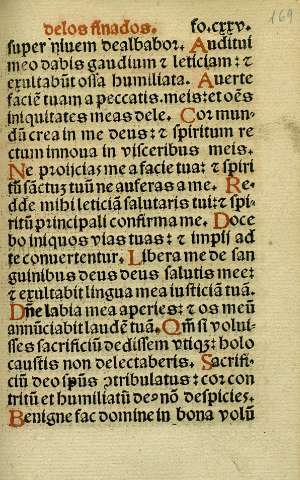 delos finados. fo.cxxv.
169
super niuem dealbabor. Auditui
meo dabis gaudium ⁊ leticiam: ⁊
exultabūt ossa humiliata. Auerte
faciē tuam a peccatis.meis:et oēs
iniquitates meas dele. Cor mun-
dū crea in me deus: ⁊ spiritum re
ctum innoua in visceribus meis.
Ne proijcias me a facie tua: ⁊ spiri
tū sāctuʒ tuū ne auferas a me. Re-
dde mihi leticiā salutaris tui: ⁊ spi-
ritū principali confirma me. Doce
bo iniquos vias tuas: ⁊ impij ad
te conuertentur. Libera me de san
guinibus deus deus salutis mee:
⁊ exultabit lingua mea iusticiā tuā.
Dñe labia mea aperies: ⁊ os meū
annūciabit laudē tuā. Qm̄ si volui-
sses sacrificiū dedissem vtiqʒ: holo
caustis non delectaberis. Sacrifi-
ciū deo spūs ꝯtribulatus: cor con
tritū et humiliatū de⁹ nō despicies.
Benigne fac domine in bona volū